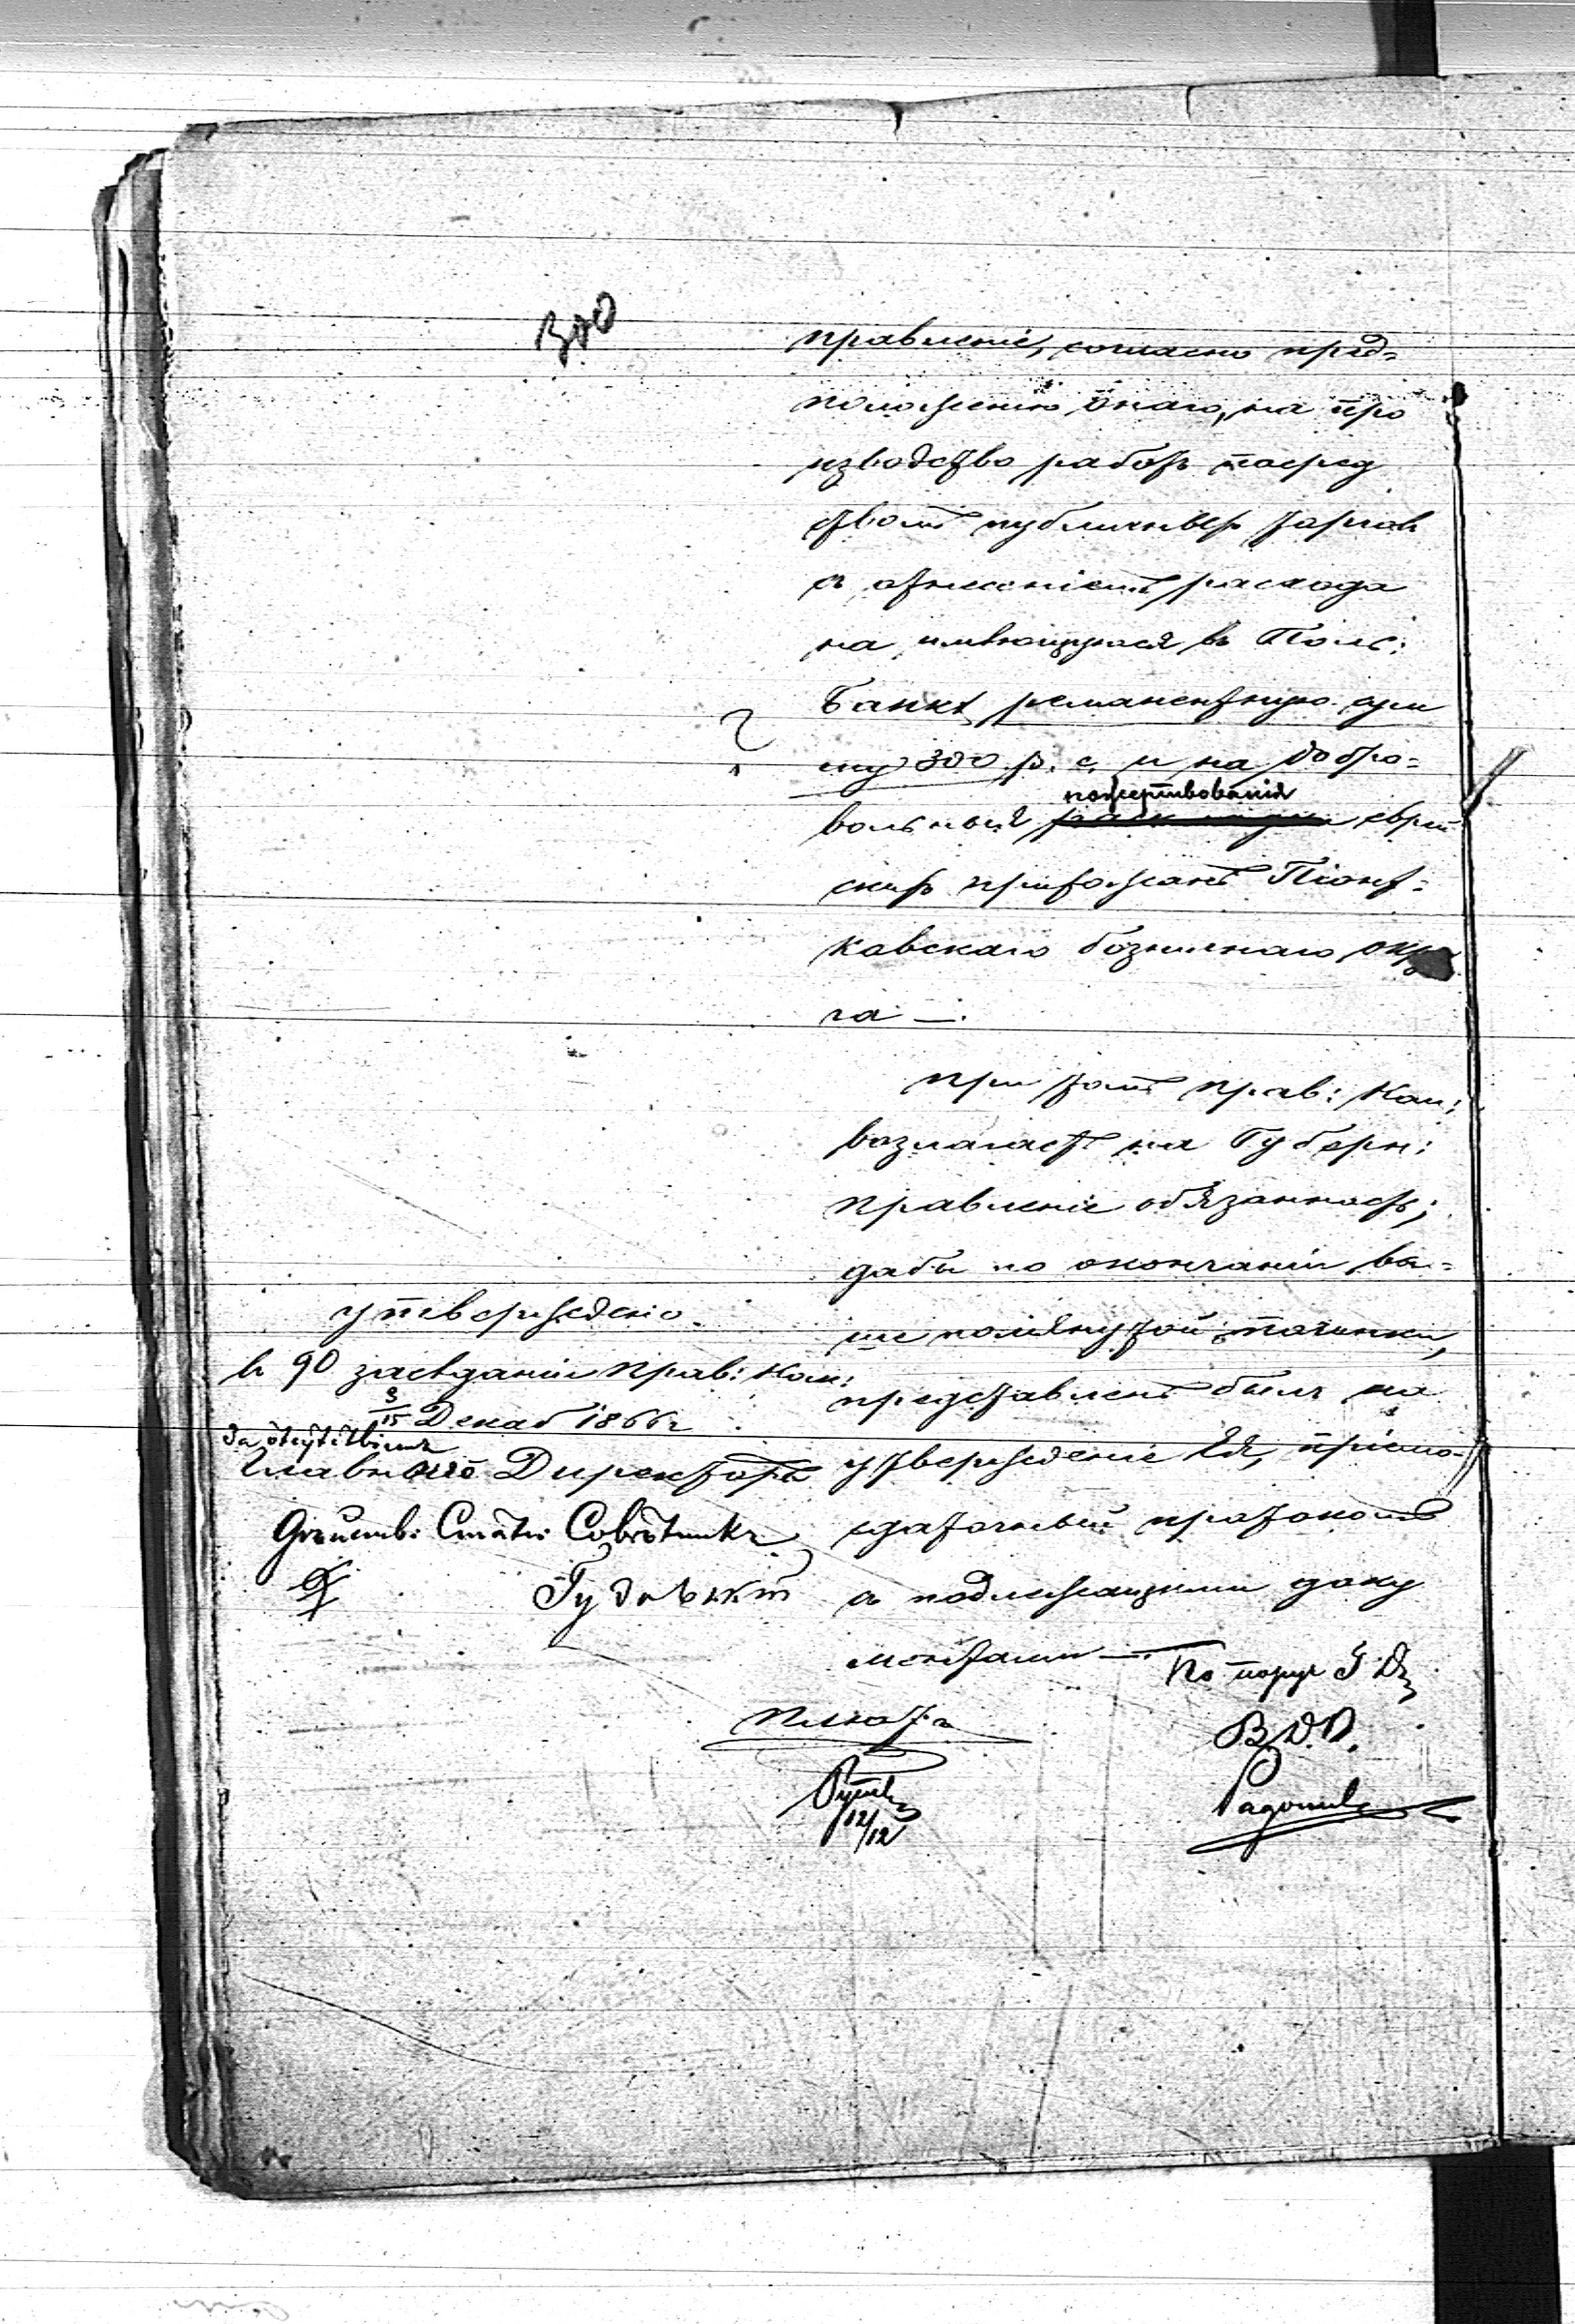 300
правленіе, согласно пред-
положенію онаго, на про
изводство работъ посред
ствомъ публичныхъ торговъ
съ отнесеніемъ расхода
на имѣющуюся въ Поль:
Банкѣ, ремонентную сум
му 300 р. с. и на добро-
пожертвованія
вольныя еврей
скихъ прихожанъ Піонт-
ковскаго божничнаго окру
га —.
При томъ Прав: Ком:
возлагаетъ на Губерн:
Правленіе обязанность,
дабы по окончаніи вы-
ше помянутой починки,
представленъ былъ на
утвержденіе Ея, пріемо-
сдаточный протоколъ
съ подлежащими доку
ментами —.
утверждено.
въ 90 засѣданіи Прав: Ком:
3/15 Декаб 1866 г
За отсутствіемъ
Главнаго Директора
Дѣйстви: Статс: Совѣтникъ
По поруч Г. Д.
В. Д. О.
12/12